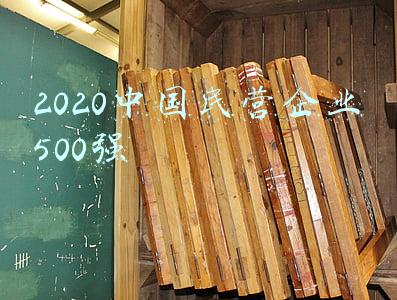 2020中国民营企业
500强